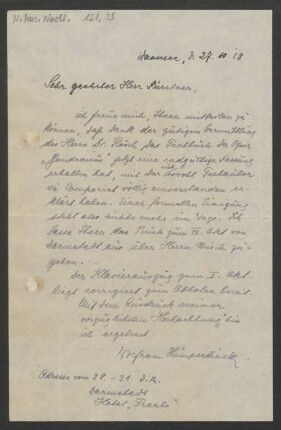 N. Mus. Nachl. 121, 35
Wannsee, d. 27. 10. 18
Sehr geehrter Herr Fürstner,
ich freue mich, Ihnen mitteilen zu
können, daß dank der gütigen Vermittlung
des Herrn Dr. Rösch das Textbuch der Oper
„Gaudeamus" jetzt eine endgültige Fassung
erhalten hat, mit der sowohl Textautor
wie Componist völlig einverstanden er-
klärt haben. Einer formellen Einigung
steht also nichts mehr im Wege. Ich
lasse Ihnen das Buch zum III. Akt von
Darmstadt aus über Herrn zu-
gehen.
Der Klavierauszug zum I. Akt
liegt corrigiert zum Abholen bereit.
Mit dem Ausdruck meiner
vorzüglichsten Hochachtung bin
ich ergebenst
Wolfram Humperdinck
Adresse vom 28. - 31. d. M.
Darmstadt
Hotel „Traube"